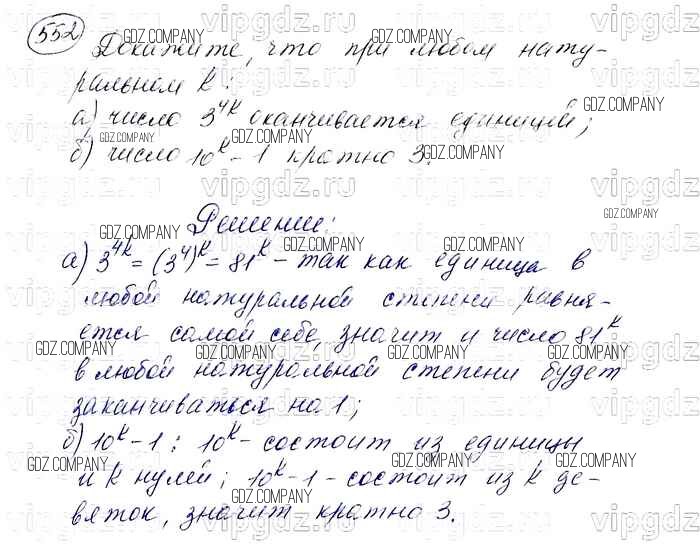 552
Докажите, что при любом нату-
ральном k:
а) число 3^{4k} оканчивается единицей;
б) число 10^k - 1 кратно 3.
Решение:
а) 3^{4k} = (3^4)^k = 81^k - так как единица в
любой натуральной степени равня-
ется самой себе, значит и число 81^k
в любой натуральной степени будет
заканчиваться на 1;
б) 10^k - 1 : 10^k - состоит из единицы
и k нулей; 10^k - 1 - состоит из k де-
вяток, значит кратно 3.